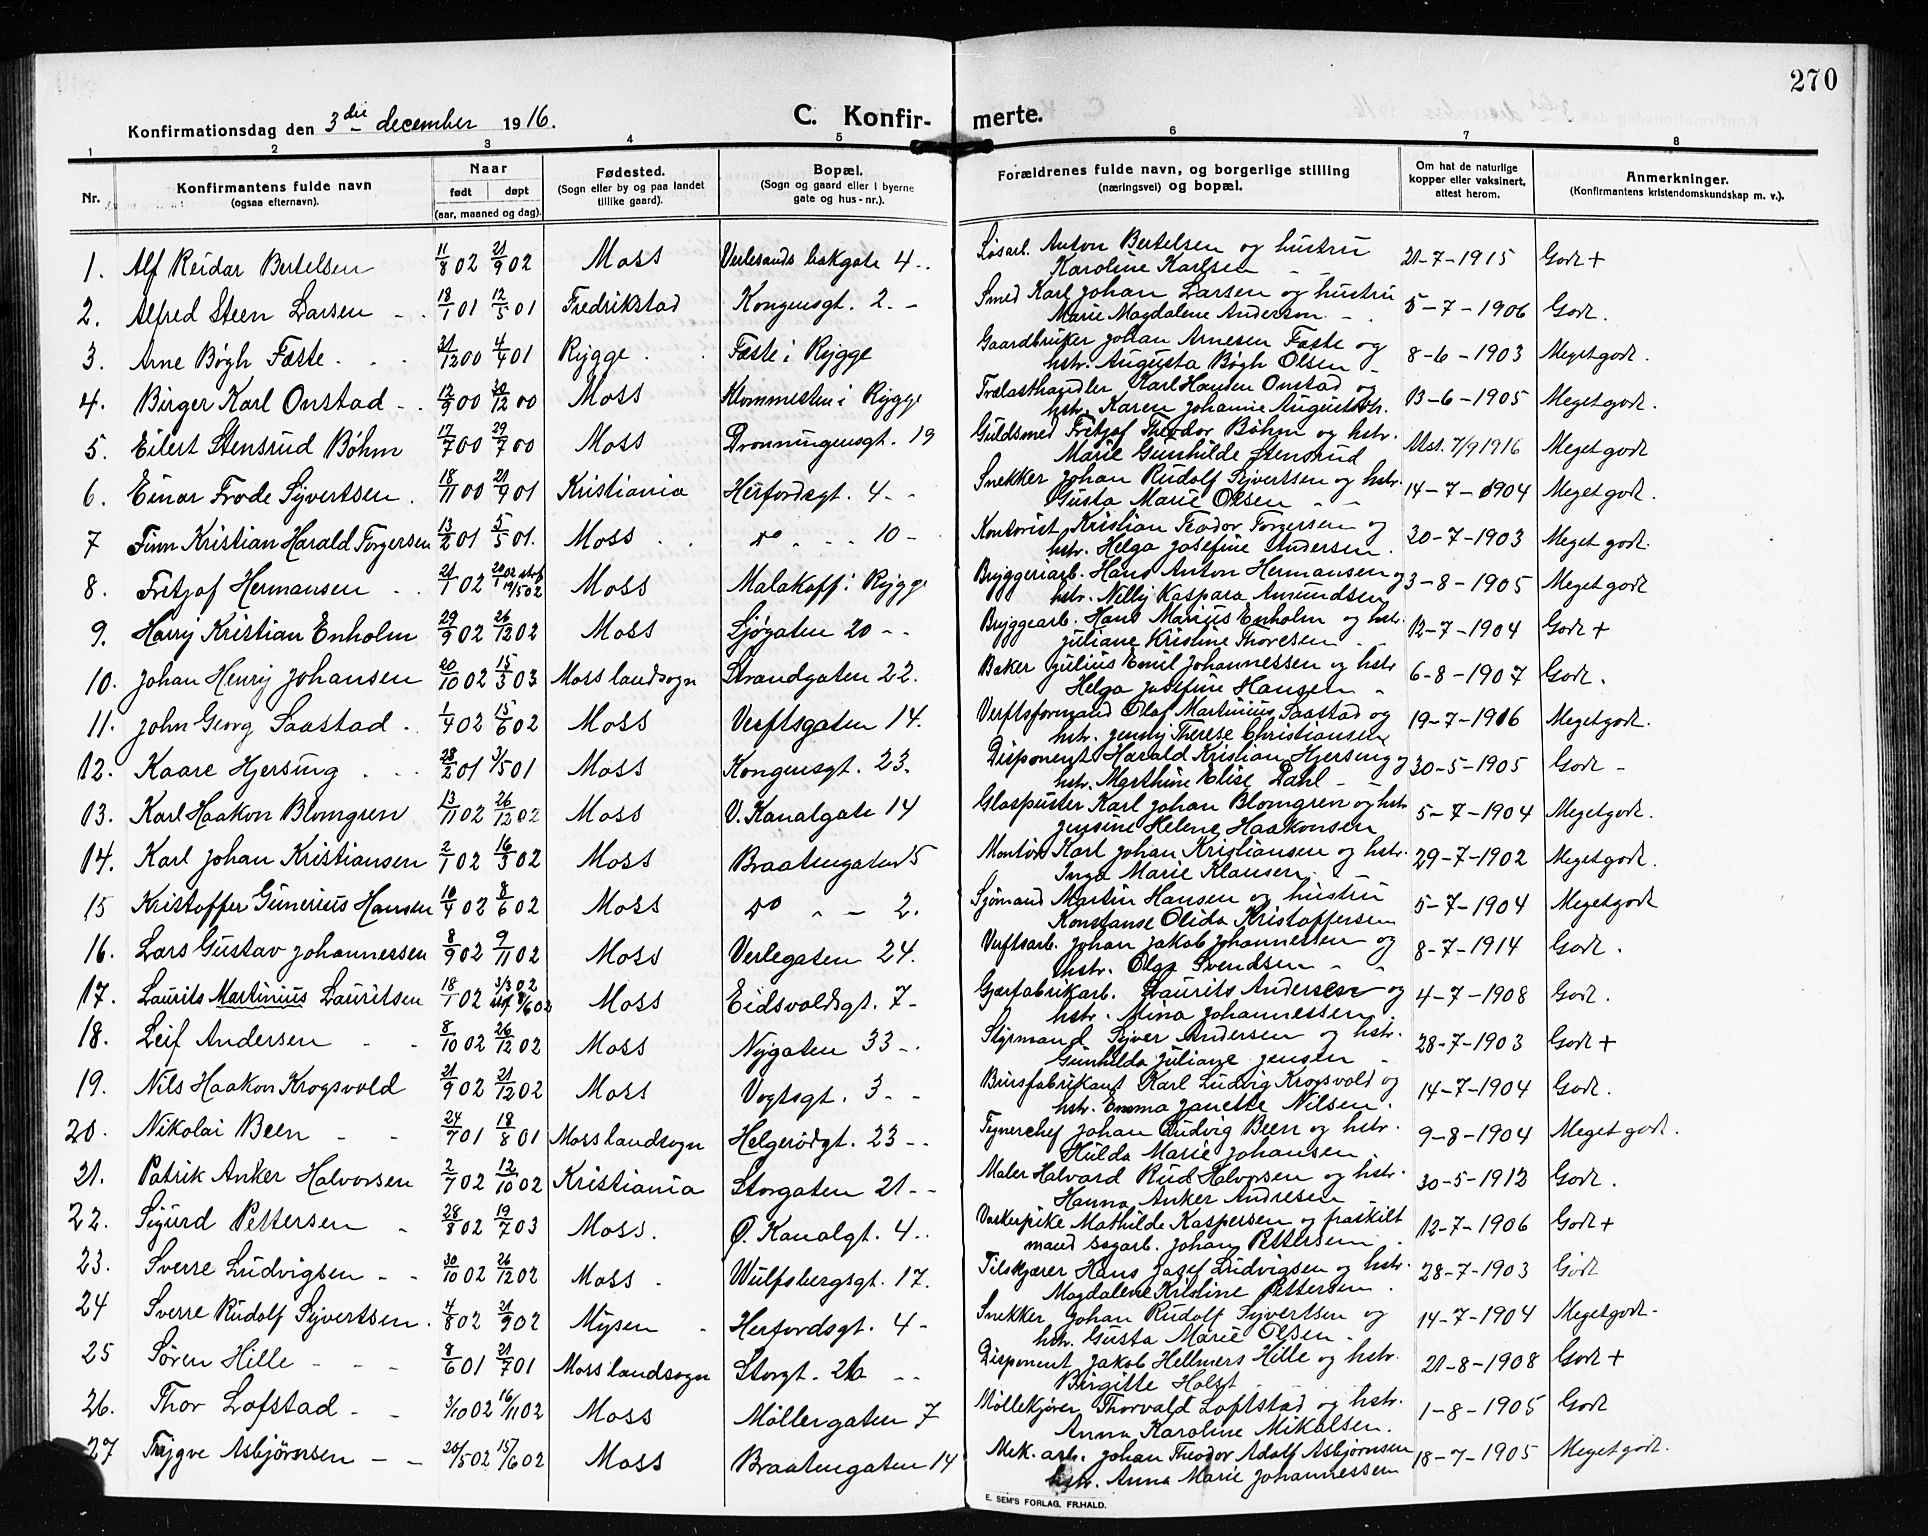 270
Konfirmationsdag den 3die december 1916. C. Konfirmerte.
1 2 3 4 5 6 7 8
Nr. Konfirmantens fulde navn (ogsaa efternavn). Naar født døpt (aar, maaned og dag). Fødested. (Sogn eller by og paa landet tillike gaard). Bopæl. (Sogn og gaard eller i byerne gate og hus-nr.). Forældrenes fulde navn, og borgerlige stilling (næringsvei) og bopæl. Om hat de naturlige kopper eller vaksinert, attest herom. Anmerkninger. (Konfirmantens kristendomskundskap m. v.).
1. Alf Reidar Bertelsen 11/8 02 21/9 02 Moss Verlesands bakgate 4 Løsarb. Anton Bertelsen og hustru 21-7-1915 Godt +
Karoline Karlsen
2. Alfred Steen Larsen 18/1 01 12/5 01 Fredrikstad Kongensgt. 2. Smed Karl Johan Larsen og hustru 5-7-1906 Godt.
Marie Magdalene Anderson
3. Arne Bøgh Fæste 31/12 00 4/4 01 Rygge Fæste i Rygge Gaardbruker Johan Arnesen Fæste og 8-6-1903 Megetgodt.
hstr. Augusta Bøgh Olsen
4. Birger Karl Onstad 12/9 00 30/12 00 Moss Klommesten i Rygge Trælasthandler Karl Hansen Onstad og 13-6-1905 Megetgodt.
hstr. Karen Johanne
5. Eilert Stensrud Bøhm 17/7 00 29/7 00 Moss Dronningensgt. 19 Guldsmed Fritjof Theodor Bøhm og hstr. Att. 7/9 1916 Meget godt
Marie Gunhilde Stensrud
6. Einar Frode Syvertsen 18/11 00 21/9 01 Kristiania Herfordsgt. 4 Snekker Johan Rudolf Syvertsen og hstr. 14-7-1904 Meget godt.
Gusta Marie Olsen
7 Finn Kristian Harald Torgersen 13/2 01 5/5 01. Moss do 10 Kontorist Kristian Teodor Torgersen og 20-7-1903 Meget godt.
hstr. Helga Josefine Andersen.
8. Fritjof Hermansen 21/1 02 Moss Malakoff i Rygge Bryggeriarb. Hans Anton Hermansen og 3-8-1905 Meget godt
hstr. Nelly Kaspara Amundsen
9. Harry Kristian Enholm 29/9 02 26/12 02 Moss Sjøgaten 20 Bryggearb. Hans Marius Enholm og hstr. 12-7-1904 Godt +
Juliane Kristine Thoresen
10. Johan Henry Johansen 20/10 02 15/3 03 Moss landsogn Strandgaten 22. Baker Julius Emil Johannessen og hstr 6-8-1907 Godt.
Helga Josefine Hansen
11. John Georg Saastad 1/4 02 15/6 02 Moss Verftsgaten 14. Verftsformand Olaf Martinius Saastad og 19-7-1916 Megetgodt.
hstr. Jenny Therese Christiansen
12. Kaare Hjersing 28/2 01 3/5 01 Moss Kongensgt. 23. Disponent Harald Kristian Hjersing og 30-5-1905 Godt
hstr. Marthine Elise Dahl
13. Karl Haakon Blomgren 13/11 02 26/12 02 Moss V. Kanalgate 14 Glaspuster Karl Johan Blomgren og hstr 5-7-1904 Megetgodt.
Jensine Helene Haakonsen
14. Karl Johan Kristiansen 2/1 02 16/3 02 Moss Braatengaten 15 Montør Karl Johan Kristiansen og hstr. 29-7-1902 Megetgodt.
Inga Marie Klausen
15 Kristoffer Gunerius Hansen 10/4 02 8/6 02 Moss do 2. Sjømand Martin Hansen og hustru 5-7-1904 Megetgodt
Konstanse Olida Kristoffersen
16. Lars Gustav Johannessen 8/9 02 9/11 02 Moss Verlegaten 24. Verftsarb. Johan Jakob Johannessen og 8-7-1914 Godt.
hstr. Olga Svendsen
17. Laurits Martinius Lauritsen 18/1 02 3/3 02 Moss Eidsvoldsgt. 7 Gjærfabrikarb. Laurits Andersen og 4-7-1908 Godt.
hstr. Mina Johannessen.
18. Leif Andersen 8/10 02 26/12 02 Moss Nygaten 33 Styrmand Syver Andersen og hstr. 28-7-1903 Godt +
Gunhilda Juliane Jensen
19. Nils Haakon Krogsvold 21/9 02 21/12 02 Moss Vogtsgt. 3 Bursfabrikant Karl Ludvig Krogsvold og 14-7-1904 Godt.
hstr. Emma Janette Nilsen.
20. Nikolai Been 24/7 01 18/8 01 Moss landsogn Helgerødgt. 23 Johan Ludvig Been og hstr. 9-8-1904 Meget godt.
Hulda Marie Johansen.
21. Patrik Anker Halvorsen 2/7 02 12/10 02 Kristiania Storgaten 21 Maler Halvard Rud Halvorsen og hstr. 30-5-1912 Godt.
Hanna Anker Andresen
22. Sigurd Pettersen 28/8 02 19/7 03 Moss. Ø. Kanalgt. 4. Vaskerpike Mathilde Kaspersen og fraskilt 12-7-1906 Godt +
mand sagarb. Johan Pettersen
23. Sverre Ludvigsen 30/10 02 26/12 02 Moss Wulfsbergsgt. 17. Tilskjærer Hans Josef Ludvigsen og hstr. 28-7-1903 Godt
Magdalene Kristine Pettersen.
24 Sverre Rudolf Syvertsen. 4/8 02 21/9 02 Mysen Herfordsgt. 4 Snekker Johan Rudolf Syvertsen og 14-7-1904 Megetgodt
hstr. Gusta Marie Olsen.
25 Søren Hille 8/6 01 21/7 01 Moss landsogn Storgt. 26 Disponent Jakob Hellmers Hille og hstr. 21-8-1908 Godt +
Birgitte Holst
26. Thor Lofstad 3/10 02 16/11 02 Moss Møllergaten 7 Møllekjører Thorvald Loftstad og hstr. 1-8-1905 Godt
Anna Karoline Mikalsen.
27 Trygve Asbjørnsen 20/5 02 15/6 02 Moss Braatengaten 14 Mek. arb. Johan Theodor Adolf Asbjørnsen 18-7-1905 Megetgodt.
hstr. Anna Marie Johannessen
E. SEM'S FORLAG, FR.HALD.